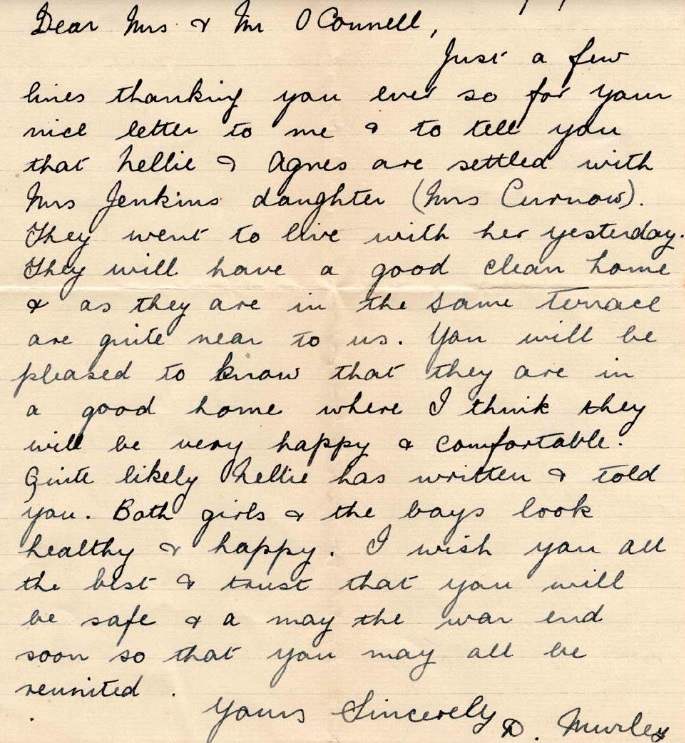 Dear Mrs & Mr O'Connell,
Just a few
lines thanking you ever so for your
nice letter to me & to tell you
that Nellie & Agnes are settled with
Mrs Jenkins daughter (Mrs Curnow).
They went to live with her yesterday.
They will have a good clean home
& as they are in the same terrace
are quite near to us. You will be
pleased to know that they are in
a good home where I think they
will be very happy & comfortable.
Quite likely Nellie has written & told
you. Both girls & the boys look
healthy & happy. I wish you all
the best & trust that you will
be safe & a may the war end
soon so that you may all be
reunited.
Yours Sincerely
D. Murley